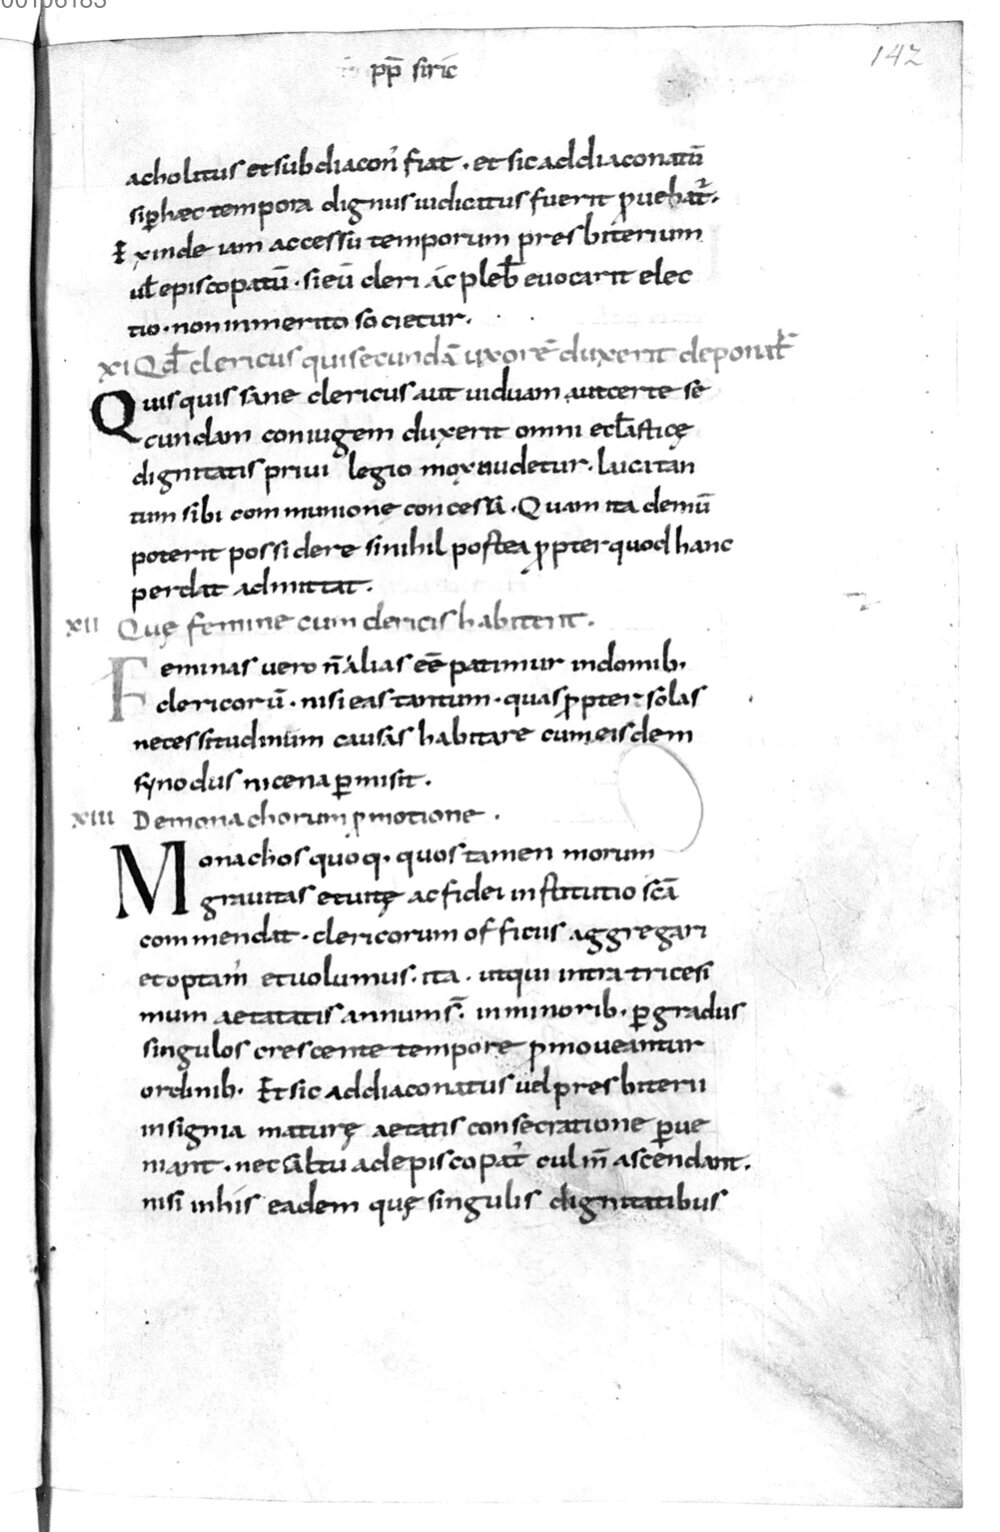 00106183
pp̄ siric̄
142
acholitus et subdiacon̄ fiat · et sic ad diaconatū
si ꝑ haec tempora dignus iudicatus fuerit ꝓuehat᷑.
Exinde iam accessu temporum presbiterium
ul̄ episcopatū · si eū cleri ac̄ pleb̄ euocarit elec
tio · non inmerito societur.
XI Qd̄ clericus qui secundā uxorē duxerit deponat᷑
Quisquis sane clericus aut uiduam aut certe se
cundam coniugem duxerit omni eccl̄astice
dignitatis priui legio mox nudetur. Laici tan
tum sibi communione concessa. Quam ita demū
poterit possidere si nihil postea ꝓpter quod hanc
perdat admittat.
XII Quę femine cum clericis habitent.
Feminas uero n̄ alias eē patimur in domib.
clericorū · nisi eas tantum · quas ꝓpter solas
necessitudinum causas habitare cum eisdem
synodus nicena ꝑmisit.
XIII De monachorum ꝓmotione.
Monachos quoq. quos tamen morum
grauitas et uitę ac fidei institutio sc̄a
commendat · clericorum officiis aggregari
et optam̄ et uolumus. ita. ut qui intra tricesi
mum aetatatis annum s̄. in minorib. ꝑ gradus
singulos crescente tempore ꝓmoueantur
ordinib. Et sic ad diaconatus uel presbiterii
insignia maturę aetatis consecratione ꝑue
niant. nec saltū ad episcopat᷑ culm̄ ascendant.
nisi in his eadem quę singulis dignitatibus